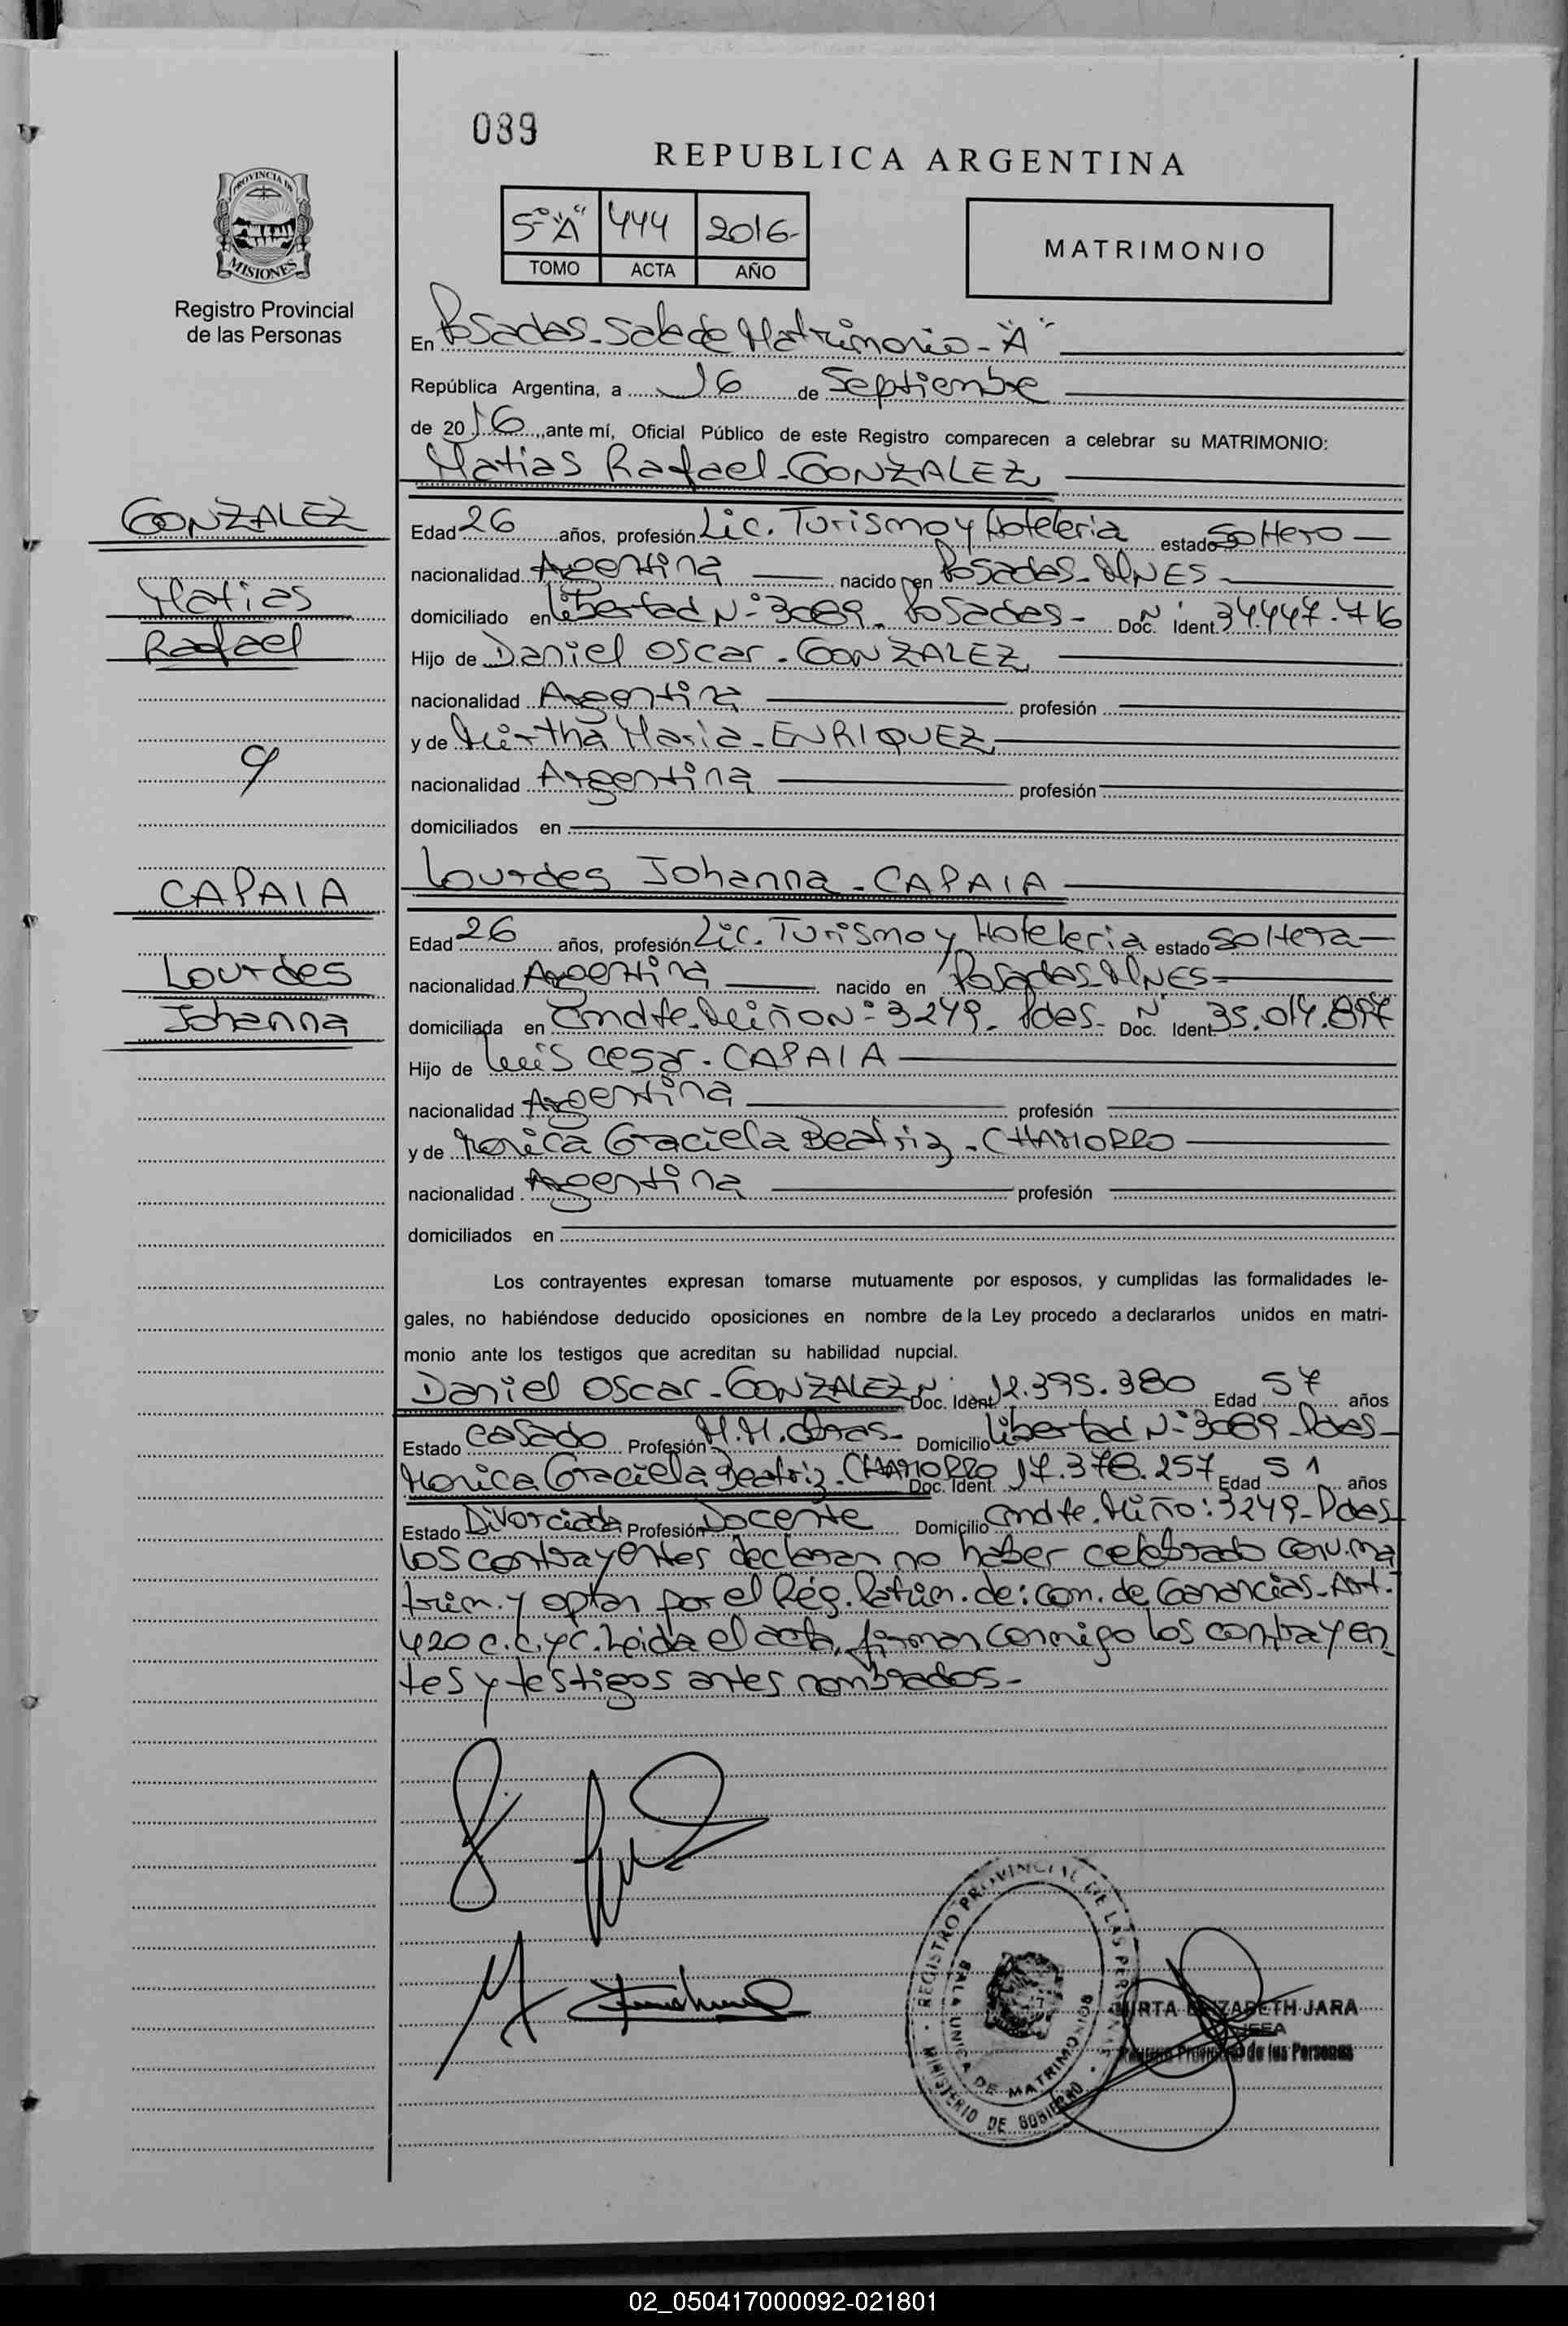 089
REPUBLICA ARGENTINA
PROVINCIA DE
MISIONES
Registro Provincial
de las Personas
5º "A" 444 2016-
TOMO ACTA AÑO
MATRIMONIO
En Posadas-Sala de Matrimonio-"A"
República Argentina, a 16 de Septiembre
de 2016, ante mí, Oficial Público de este Registro comparecen a celebrar su MATRIMONIO:
Matias Rafael-GONZALEZ
GONZALEZ
Matias
Rafael
y
Edad 26 años, profesión Lic. Turismo y Hoteleria estado Soltero-
nacionalidad Argentina nacido en Posadas-MNES
domiciliado en Libertad Nº 3089. Posadas- Doc. Nº Ident. 34.447.716
Hijo de Daniel Oscar-GONZALEZ
nacionalidad Argentina profesión
y de Mirtha Maria-ENRIQUEZ
nacionalidad Argentina profesión
domiciliados en
CAPAIA
Lourdes
Johanna
Lourdes Johanna-CAPAIA
Edad 26 años, profesión Lic. Turismo y Hoteleria estado Soltera-
nacionalidad Argentina nacido en Posadas-MNES-
domiciliada en Cmdte. Miño Nº 3249- Pdas- Doc. Nº Ident. 35.014.897
Hijo de Luis Cesar-CAPAIA
nacionalidad Argentina profesión
y de Monica Graciela Beatriz-CHAMORRO
nacionalidad Argentina profesión
domiciliados en
Los contrayentes expresan tomarse mutuamente por esposos, y cumplidas las formalidades le-
gales, no habiéndose deducido oposiciones en nombre de la Ley procedo a declararlos unidos en matri-
monio ante los testigos que acreditan su habilidad nupcial.
Daniel Oscar-GONZALEZ Nº Doc. Ident. 12.395.380 Edad 57 años
Estado Casado Profesión M.M. Obras- Domicilio Libertad Nº 3089-Pdas-
Monica Graciela Beatriz-CHAMORRO Doc. Ident. 17.378.257 Edad 51 años
Estado Divorciada Profesión Docente Domicilio Cmdte. Miño: 3249-Pdas
Los contrayentes declaran no haber celebrado conv. ma
trim. y optan por el Rég. Patrim. de: com. de Ganancias-Art.
420 C.C. y C. Leida el acta, firman conmigo los contrayen
tes y testigos antes nombrados-
REGISTRO PROVINCIAL DE LAS PERSONAS
SALA UNICA DE MATRIMONIOS
MINISTERIO DE GOBIERNO
MIRTA ELIZABETH JARA
JEFA
Registro Provincial de las Personas
02_050417000092-021801